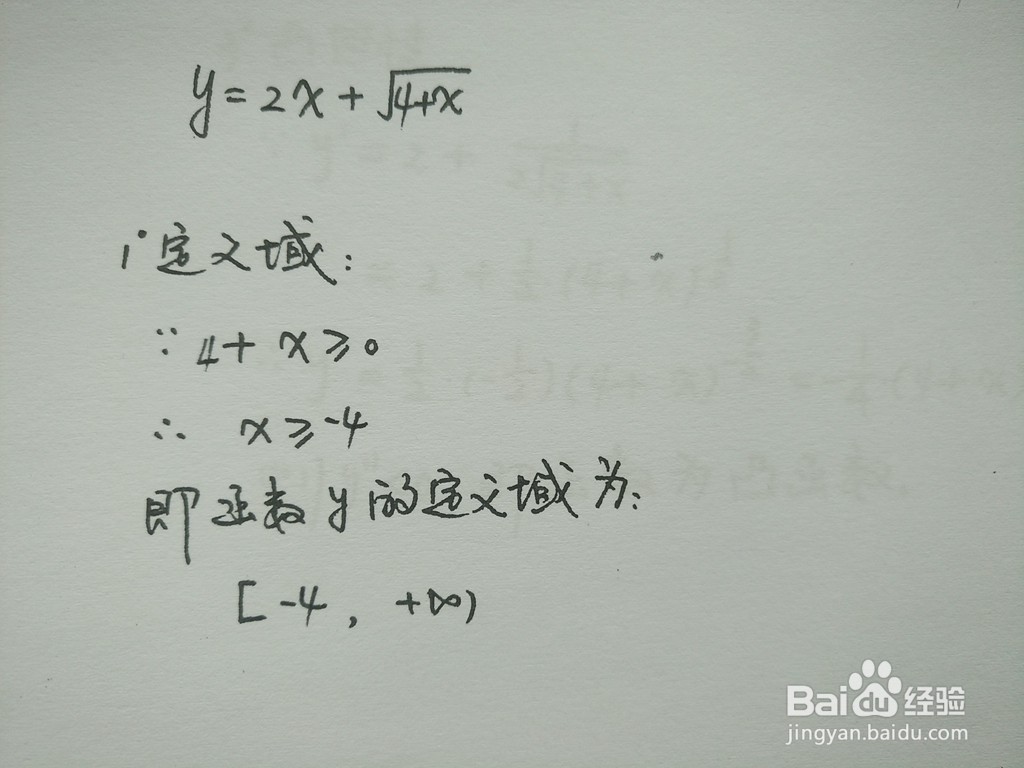 y = 2x + √(4+x)
1° 定义域:
∵ 4 + x ≥ 0
∴ x ≥ -4
即函数 y 的定义域为:
[ -4 , +∞)
Bai 经验
jingyan.baidu.com